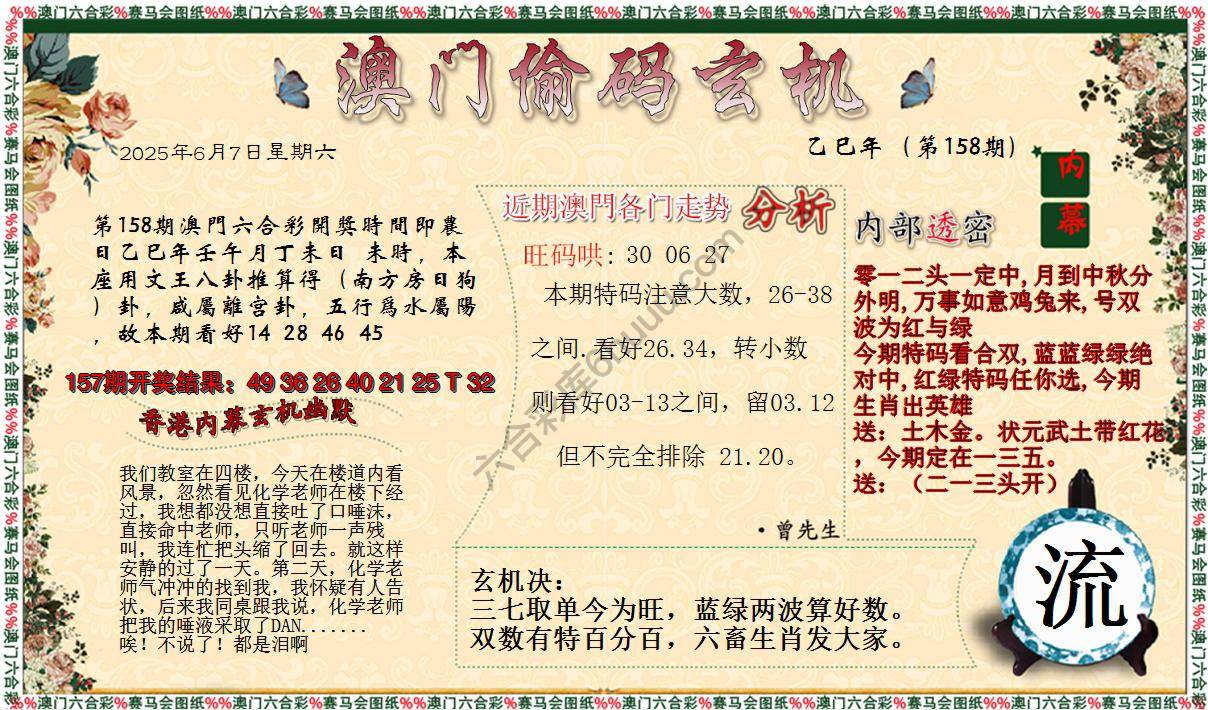 %%澳门六合彩%赛马会图纸%%澳门六合彩%赛马会图纸%%澳门六合彩%赛马会图纸%%澳门六合彩%赛马会图纸%%澳门六合彩%赛马会图纸%%澳门六合彩%赛马会图纸
澳门偷码玄机
2025年6月7日星期六
乙巳年（第158期）
内幕
第158期澳門六合彩開獎時間即農
日乙巳年壬午月丁未日 未時，本
座用文王八卦推算得（南方房日狗
）卦，咸屬離宮卦，五行爲水屬陽
，故本期看好14 28 46 45
157期开奖结果：49 36 26 40 21 25 T 32
香港内幕玄机幽默
我们教室在四楼，今天在楼道内看
风景，忽然看见化学老师在楼下经
过，我想都没想直接吐了口唾沫，
直接命中老师，只听老师一声残
叫，我连忙把头缩了回去。就这样
安静的过了一天。第二天，化学老
师气冲冲的找到我，我怀疑有人告
状，后来我同桌跟我说，化学老师
把我的唾液采取了DAN.......
唉！不说了！都是泪啊
近期澳門各门走势 分析
旺码哄: 30 06 27
本期特码注意大数，26-38
之间.看好26.34，转小数
则看好03-13之间，留03.12
但不完全排除 21.20。
·曾先生
内部透密
零一二头一定中,月到中秋分
外明,万事如意鸡兔来,号双
波为红与绿
今期特码看合双,蓝蓝绿绿绝
对中,红绿特码任你选,今期
生肖出英雄
送：土木金。状元武土带红花
，今期定在一三五。
送：（二一三头开）
玄机决：
三七取单今为旺，蓝绿两波算好数。
双数有特百分百，六畜生肖发大家。
流
%%澳门六合彩%赛马会图纸%%澳门六合彩%赛马会图纸%%澳门六合彩%赛马会图纸%%澳门六合彩%赛马会图纸%%澳门六合彩%赛马会图纸%%澳门六合彩%赛马会图纸